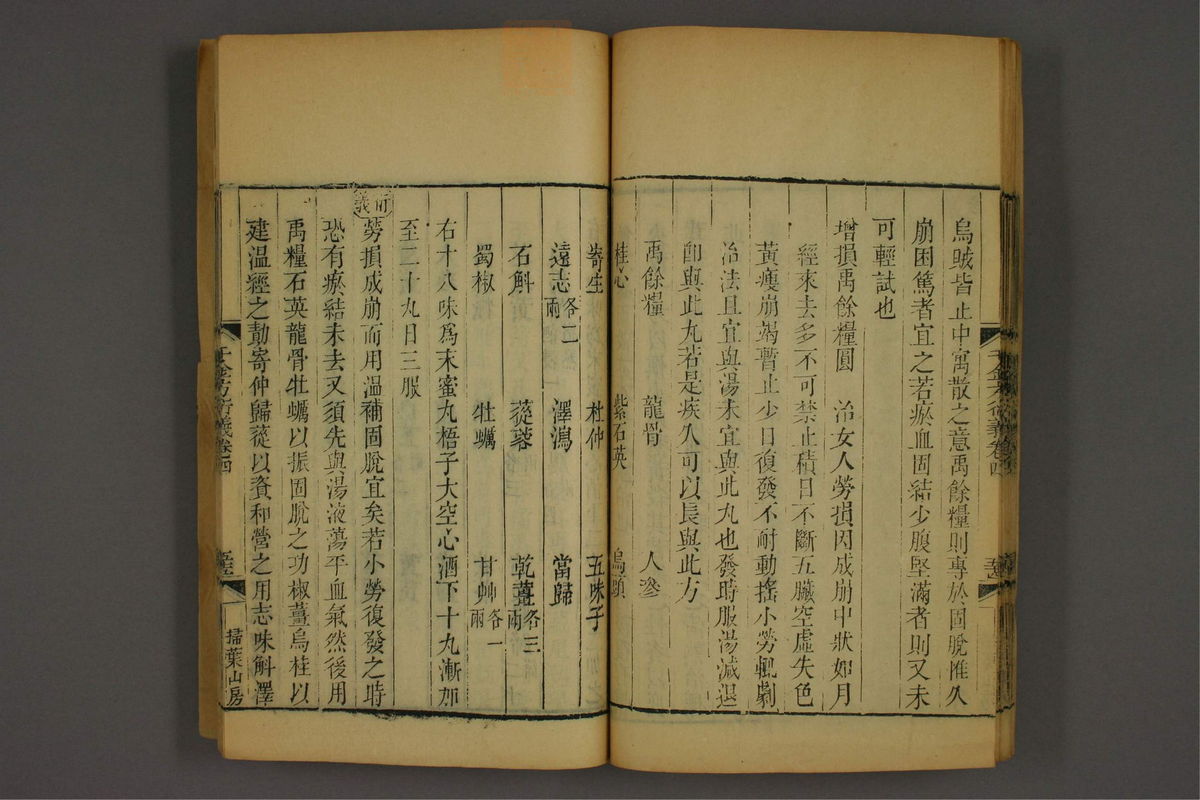 烏賊皆止中寓散之意禹餘糧則專於固脫惟久
崩困篤者宜之若瘀血固結少腹堅滿者則又未
可輕試也
增損禹餘糧圓　治女人勞損因成崩中狀如月
經來去多不可禁止積日不斷五臟空虛失色
黃瘦崩竭暫止少日復發不耐動搖小勞輒劇
治法且宜與湯未宜與此丸也發時服湯減退
卽與此丸若是疾久可以長與此方
禹餘糧　龍骨　人滲
桂心　紫石英　烏頭
寄生　杜仲　五味子
遠志各二兩　澤瀉　當歸
石斛　蓯蓉　乾薑各三兩
蜀椒　牡蠣　甘艸各一兩
右十八味爲末蜜丸梧子大空心酒下十丸漸加
至二十丸日三服
衍義
勞損成崩而用溫補固脫宜矣若小勞復發之時
恐有瘀結未去又須先與湯液蕩平血氣然後用
禹糧石英龍骨牡蠣以振固脫之功椒薑烏桂以
建溫經之勣寄仲歸蓯以資和營之用志味斛澤
千金方衍義卷四
掃葉山房